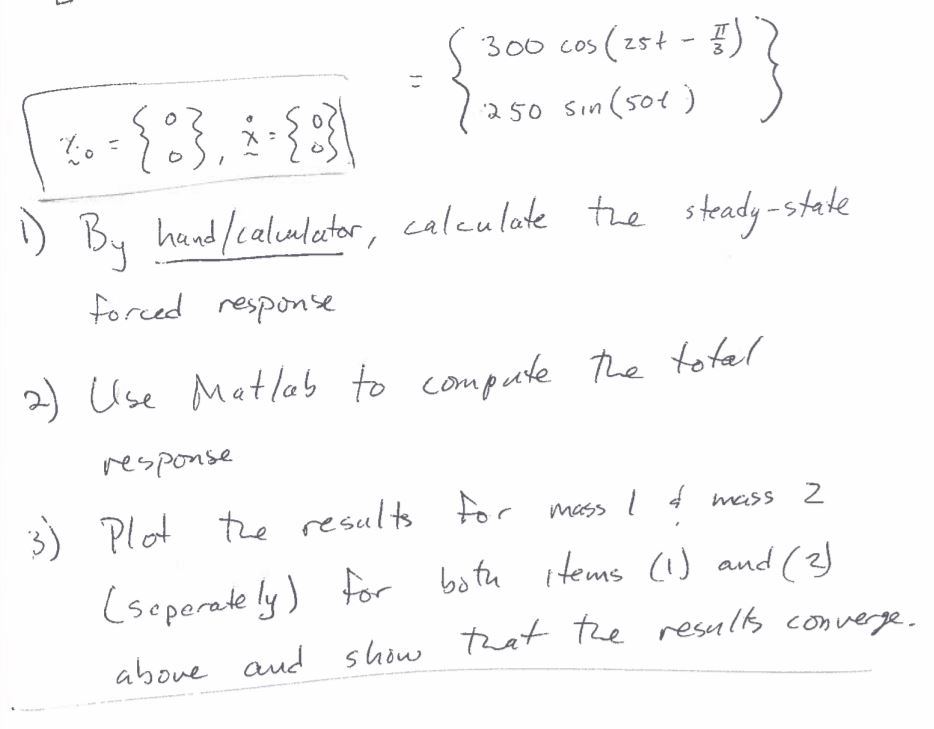 = { 300 cos(25t - π/3)
250 sin(50t) }
x₀ = {0 0}, ẋ = {0 0}
1) By hand/calculator, calculate the steady-state
forced response
2) Use Matlab to compute the total
response
3) Plot the results for mass 1 & mass 2
(seperately) for both items (1) and (2)
above and show that the results converge.